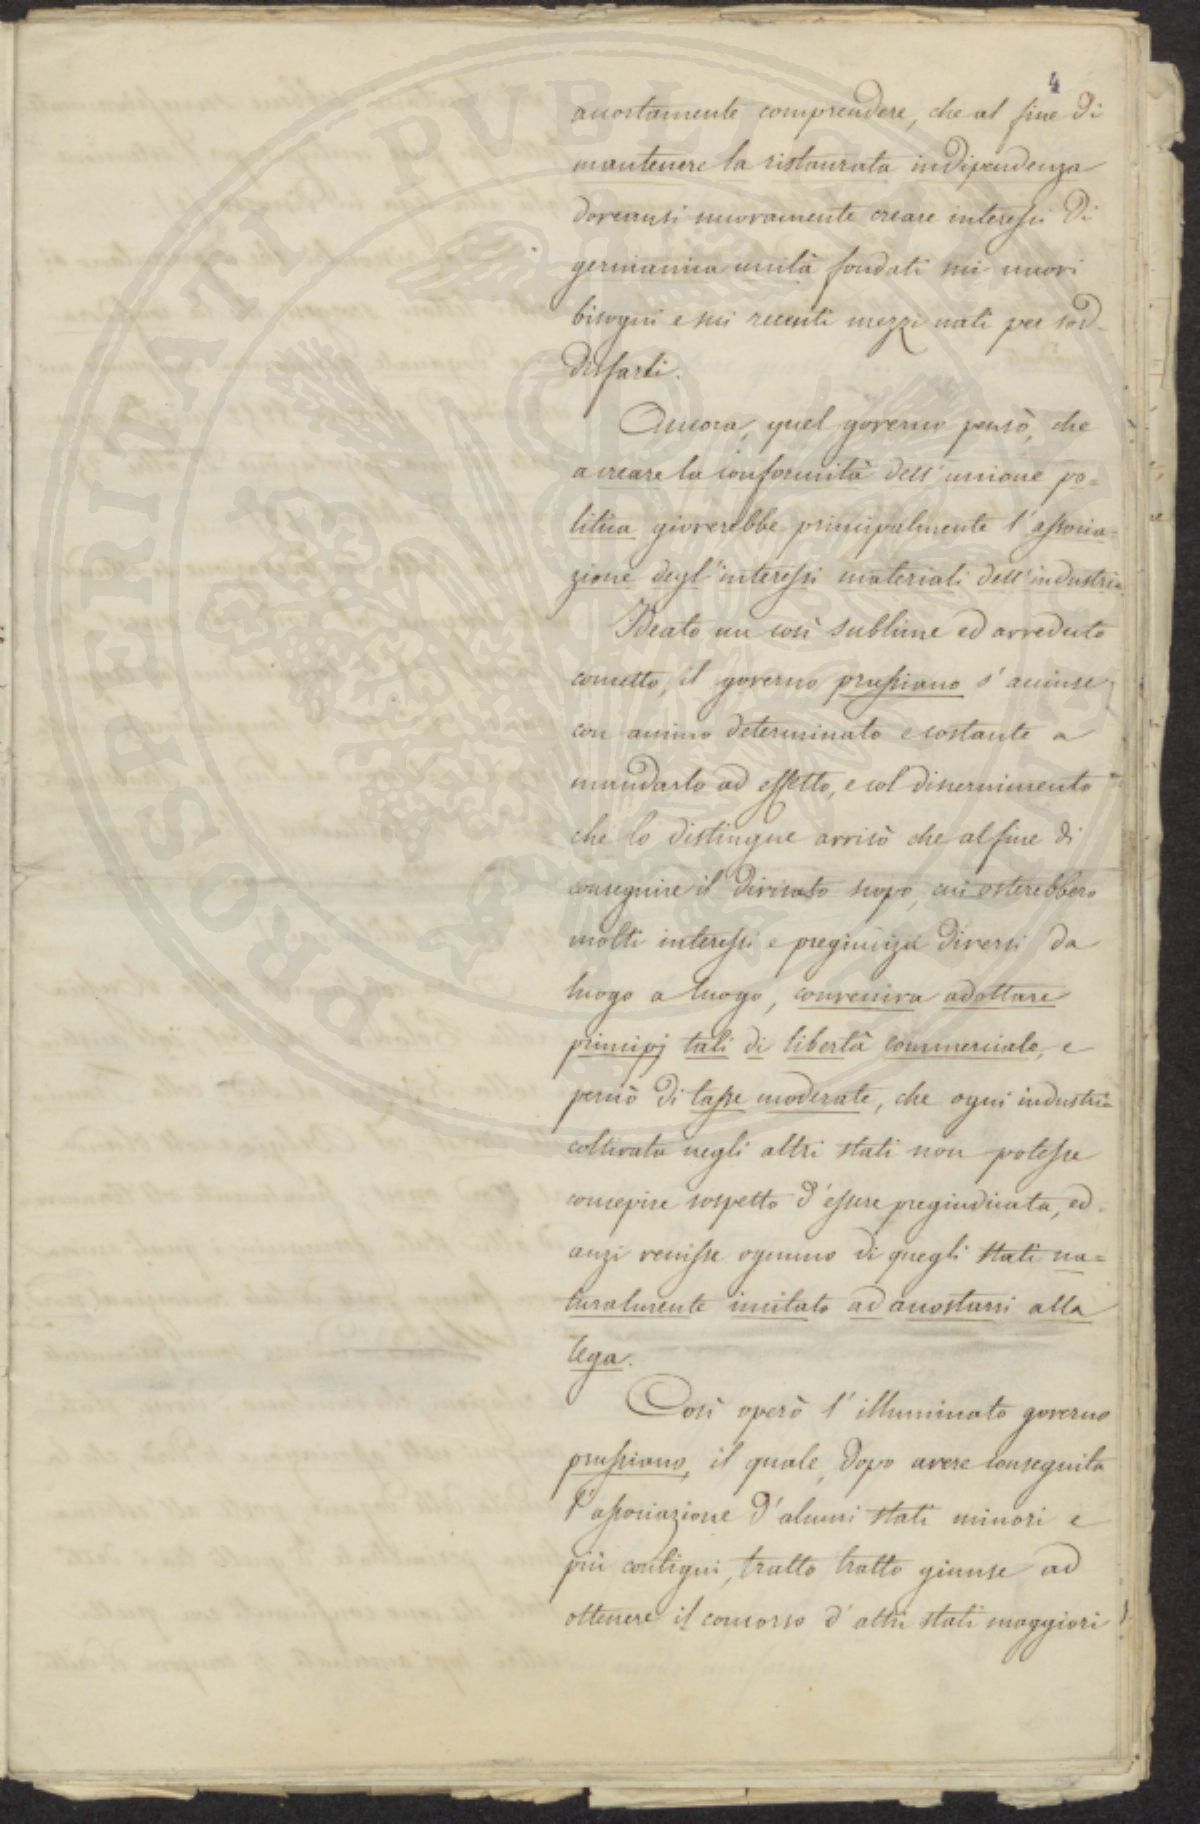 4
accortamente comprendere, che al fine di
mantenere la ristaurata indipendenza
doveansi nuovamente creare interessi di
germanica unità fondati sui nuovi
bisogni e sui recenti mezzi nati per sod-
disfarli.
Ancora, quel governo pensò, che
a creare la conformità dell'unione po=
litica gioverebbe principalmente l'associa-
zione degl'interessi materiali dell'industria
Ideato un così sublime ed avveduto
concetto, il governo prussiano s'accinse
con animo determinato e costante a
mandarlo ad effetto, e col discernimento
che lo distingue avvisò che al fine di
conseguire il divisato scopo, cui osterebbero
molti interessi e pregiudizii diversi da
luogo a luogo, conveniva adottare
principj tali di libertà commerciale, e
perciò di tasse moderate, che ogni industria
coltivata negli altri stati non potesse
concepire sospetto d'essere pregiudicata, ed
anzi venisse ognuno di quegli stati na=
turalmente invitato ad accostarsi alla
lega.
Così operò l'illuminato governo
prussiano, il quale, dopo avere conseguita
l'associazione d'alcuni stati minori e
più contigui, tratto tratto giunse ad
ottenere il concorso d'altri stati maggiori
PROSPERITATI PUBLICAE